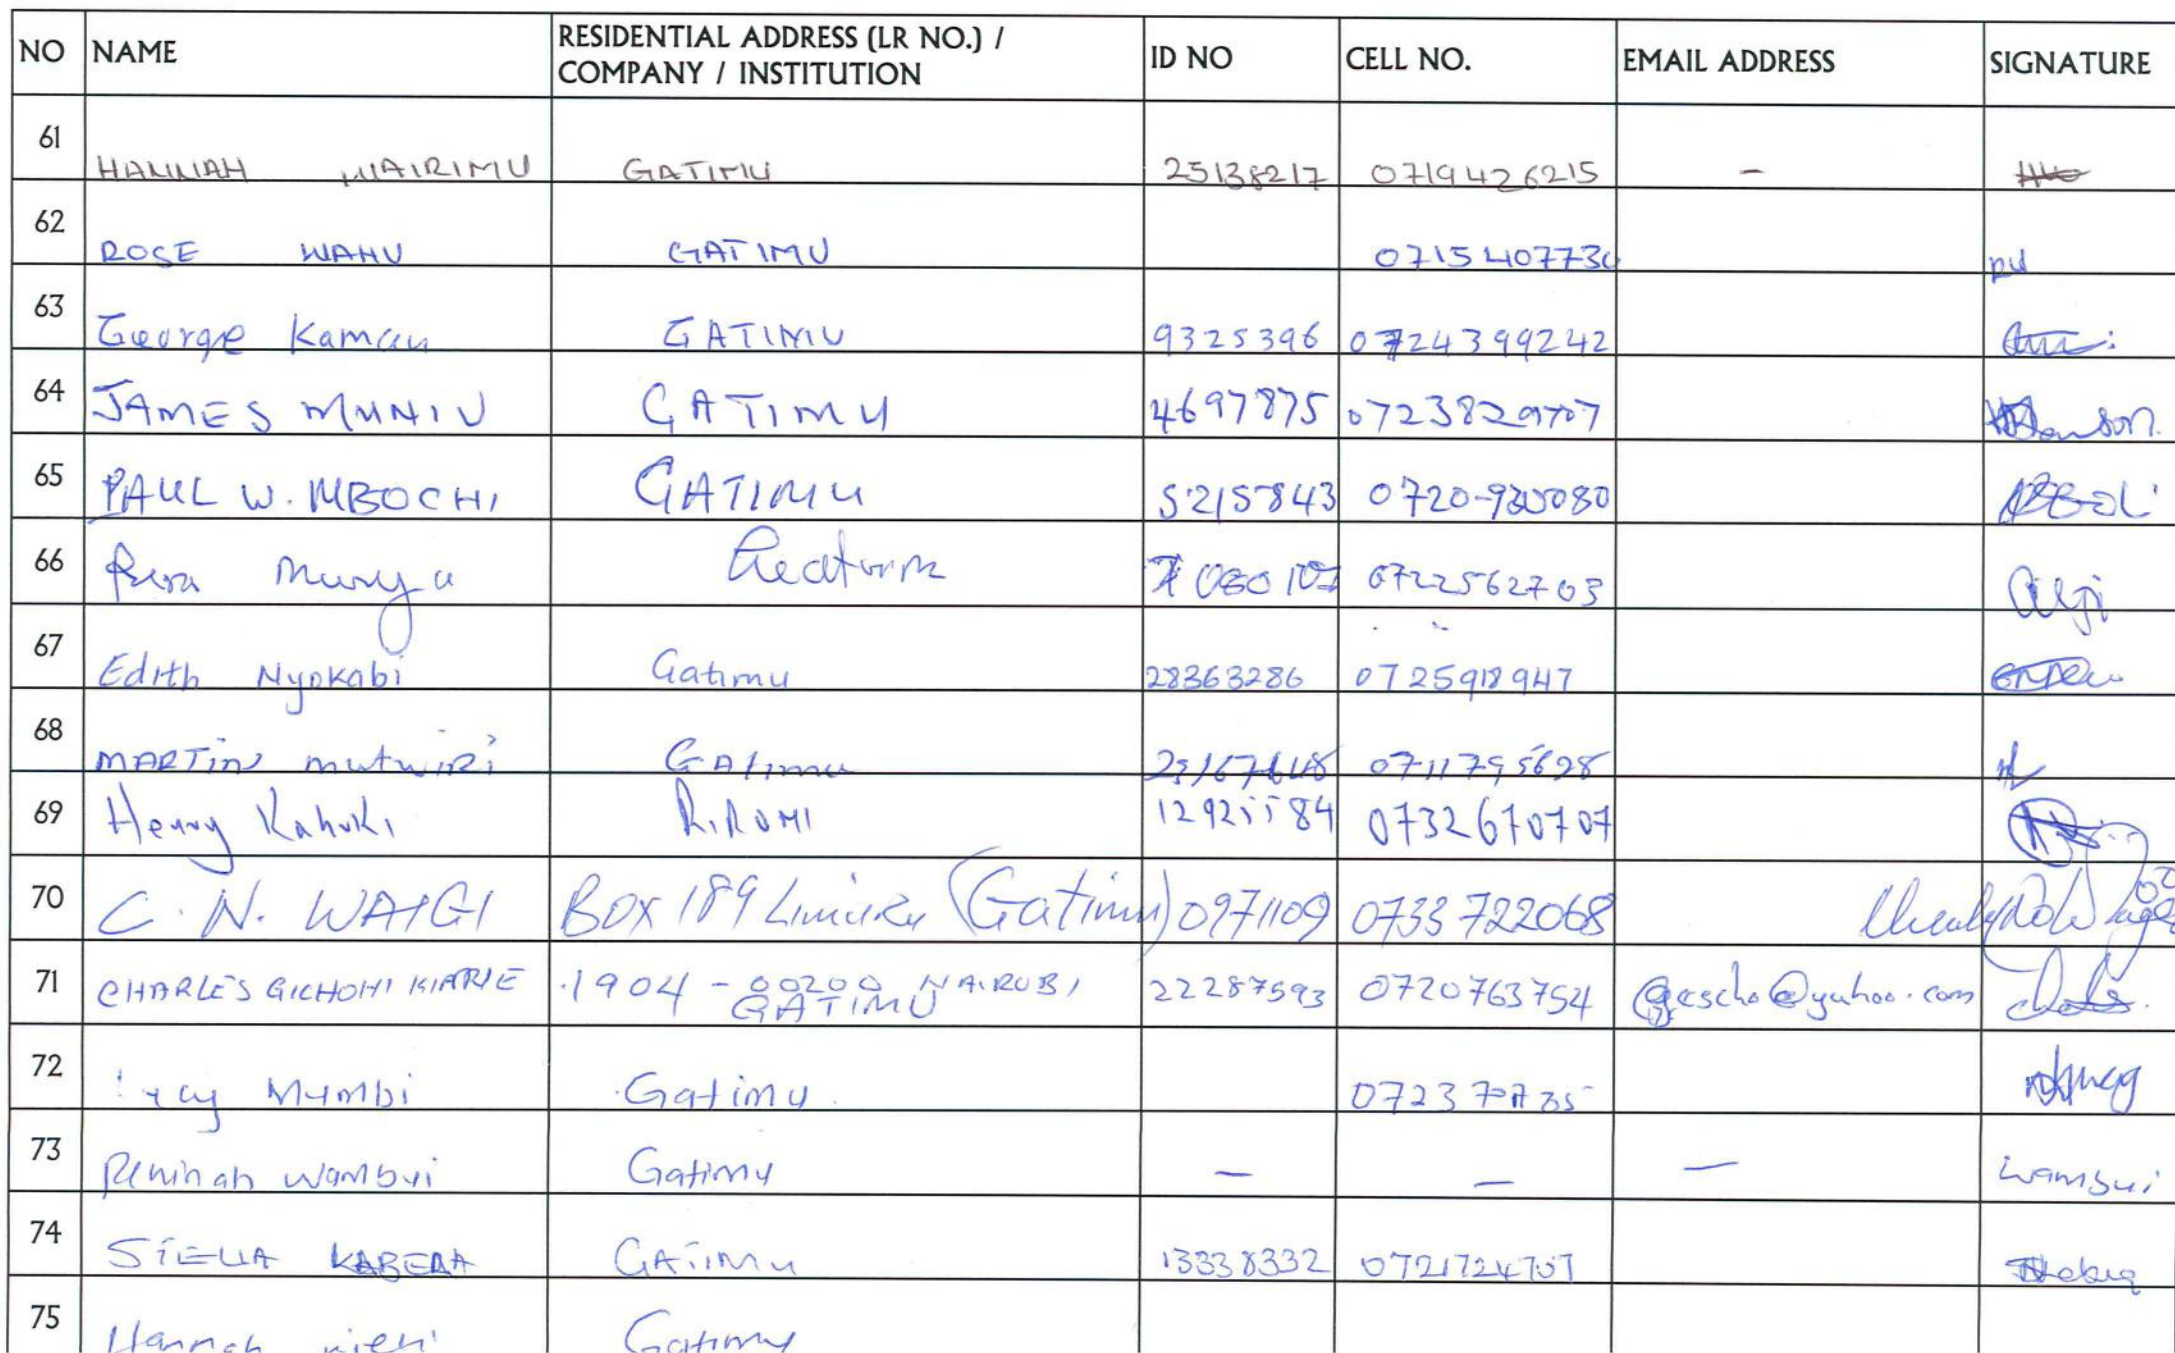 NO NAME RESIDENTIAL ADDRESS (LR NO.) / COMPANY / INSTITUTION ID NO CELL NO. EMAIL ADDRESS SIGNATURE
61 HANNAH WAIRIMU GATIMU 25138217 0719426215 -
62 ROSE WAHU GATIMU RW
63 George Kamau GATIMU 9325396 0724399242
64 JAMES MUNIU GATIMU 4697875
65 PAUL W. MBOCHI GATIMU 5215843
66 0722562703
67 Edith Nyokabi Gatimu 28363286
68 MARTIN mutwiri Gatimu 0711795628
69 Henry Kahuki 0732670707
70 C. N. WAIGI BOX 189 Limuru (Gatimu) 0971109 0733722068
71 CHARLES GICHOHI KIARIE 1904 - 00200 NAIROBI 22287593 0720763754
GATIMU
72 Mumbi Gatimu
73 Peninah Wambui Gatimu — — — Wambui
74 STELLA GATIMU 13338332
75 Hannah Gatimu